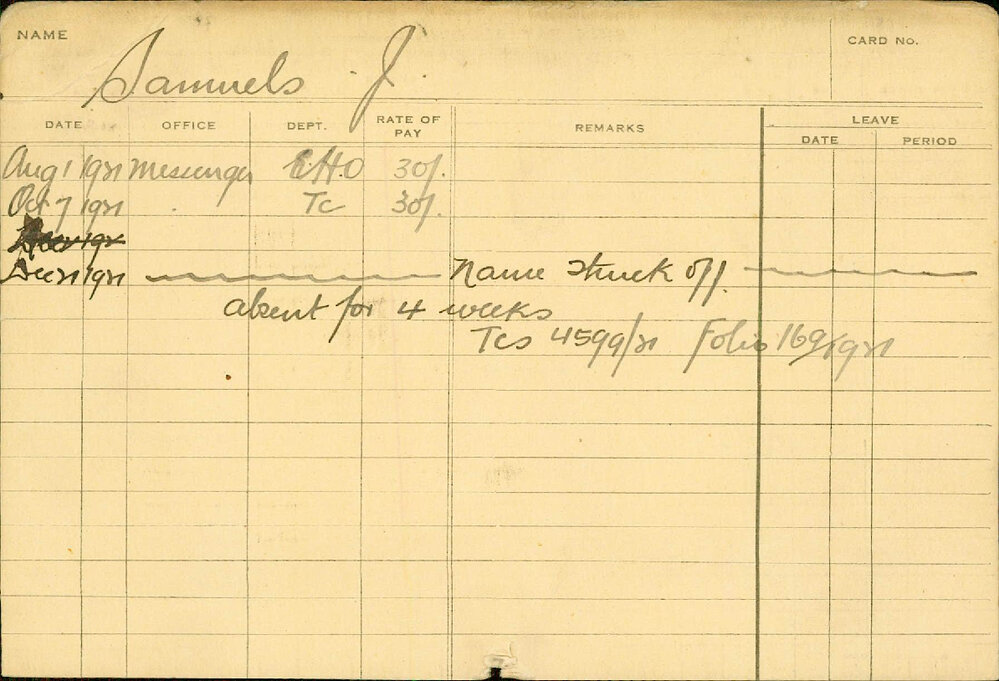 NAME Samuels J. CARD No.
DATE OFFICE DEPT. RATE OF PAY REMARKS LEAVE
DATE PERIOD
Aug 1 1921 Messenger E.H.O 30/.
Oct 7 1921 Tc 30/.
Dec 21 1921 Name struck off.
absent for 4 weeks
Tcs 4599/21 Folio 169/1921